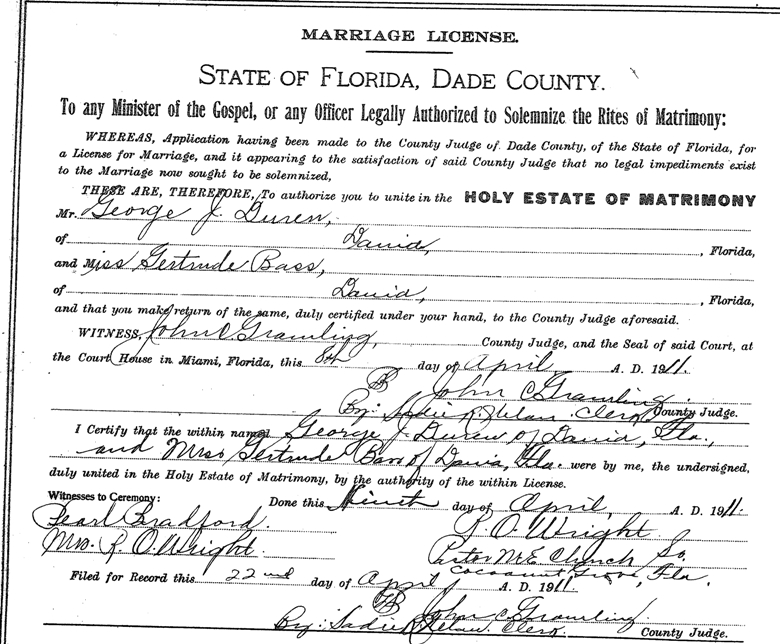 MARRIAGE LICENSE.
STATE OF FLORIDA, DADE COUNTY.
To any Minister of the Gospel, or any Officer Legally Authorized to Solemnize the Rites of Matrimony:
WHEREAS, Application having been made to the County Judge of Dade County, of the State of Florida, for
a License for Marriage, and it appearing to the satisfaction of said County Judge that no legal impediments exist
to the Marriage now sought to be solemnized,
THESE ARE, THEREFORE, To authorize you to unite in the HOLY ESTATE OF MATRIMONY
Mr. George J. Duren,
of Dania, , Florida,
and Miss Gertrude Bass,
of Dania, , Florida,
and that you make return of the same, duly certified under your hand, to the County Judge aforesaid.
WITNESS, John C. Gramling, County Judge, and the Seal of said Court, at
the Court House in Miami, Florida, this 8th day of April, A. D. 1911.
John C Gramling
By: Sadie R. Clerk County Judge.
I Certify that the within named George J. Duren of Dania, Fla.,
and Miss Gertrude Bass of Dania, Fla. were by me, the undersigned,
duly united in the Holy Estate of Matrimony, by the authority of the within License.
Witnesses to Ceremony: Done this Ninth day of April, A. D. 1911.
Pearl Bradford. R. O. Wright
Mrs. R. O. Wright. Pastor M.E. Church So.
Cocoanut Grove, Fla.
Filed for Record this 22nd day of April A. D. 1911.
John C Gramling
By: Sadie R. Clerk. County Judge.